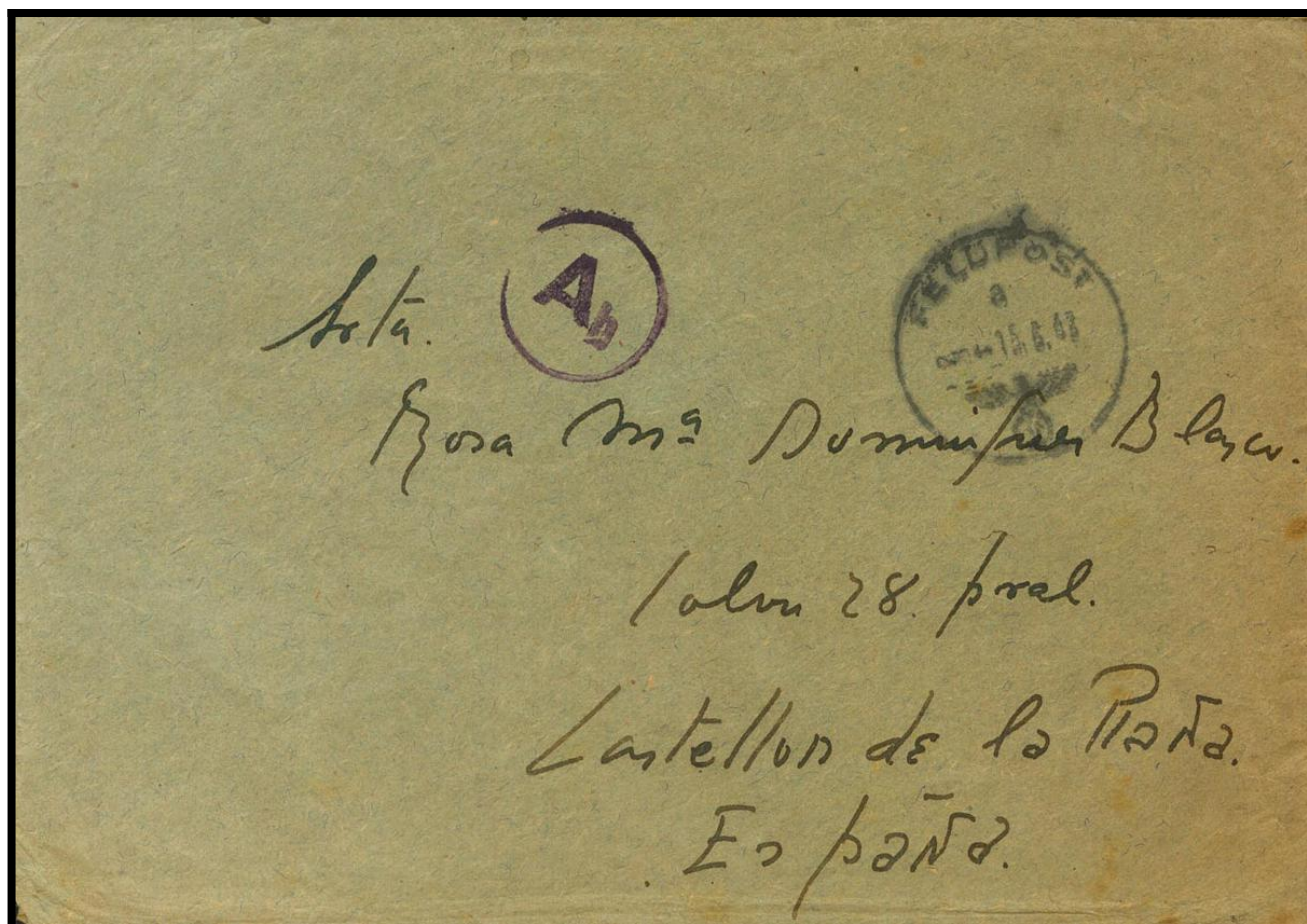 Ab
FELDPOST
a
15.6.43
Srta.
Rosa Mª Dominguez Blasco.
Colon 28. pral.
Castellon de la Plaña.
España.